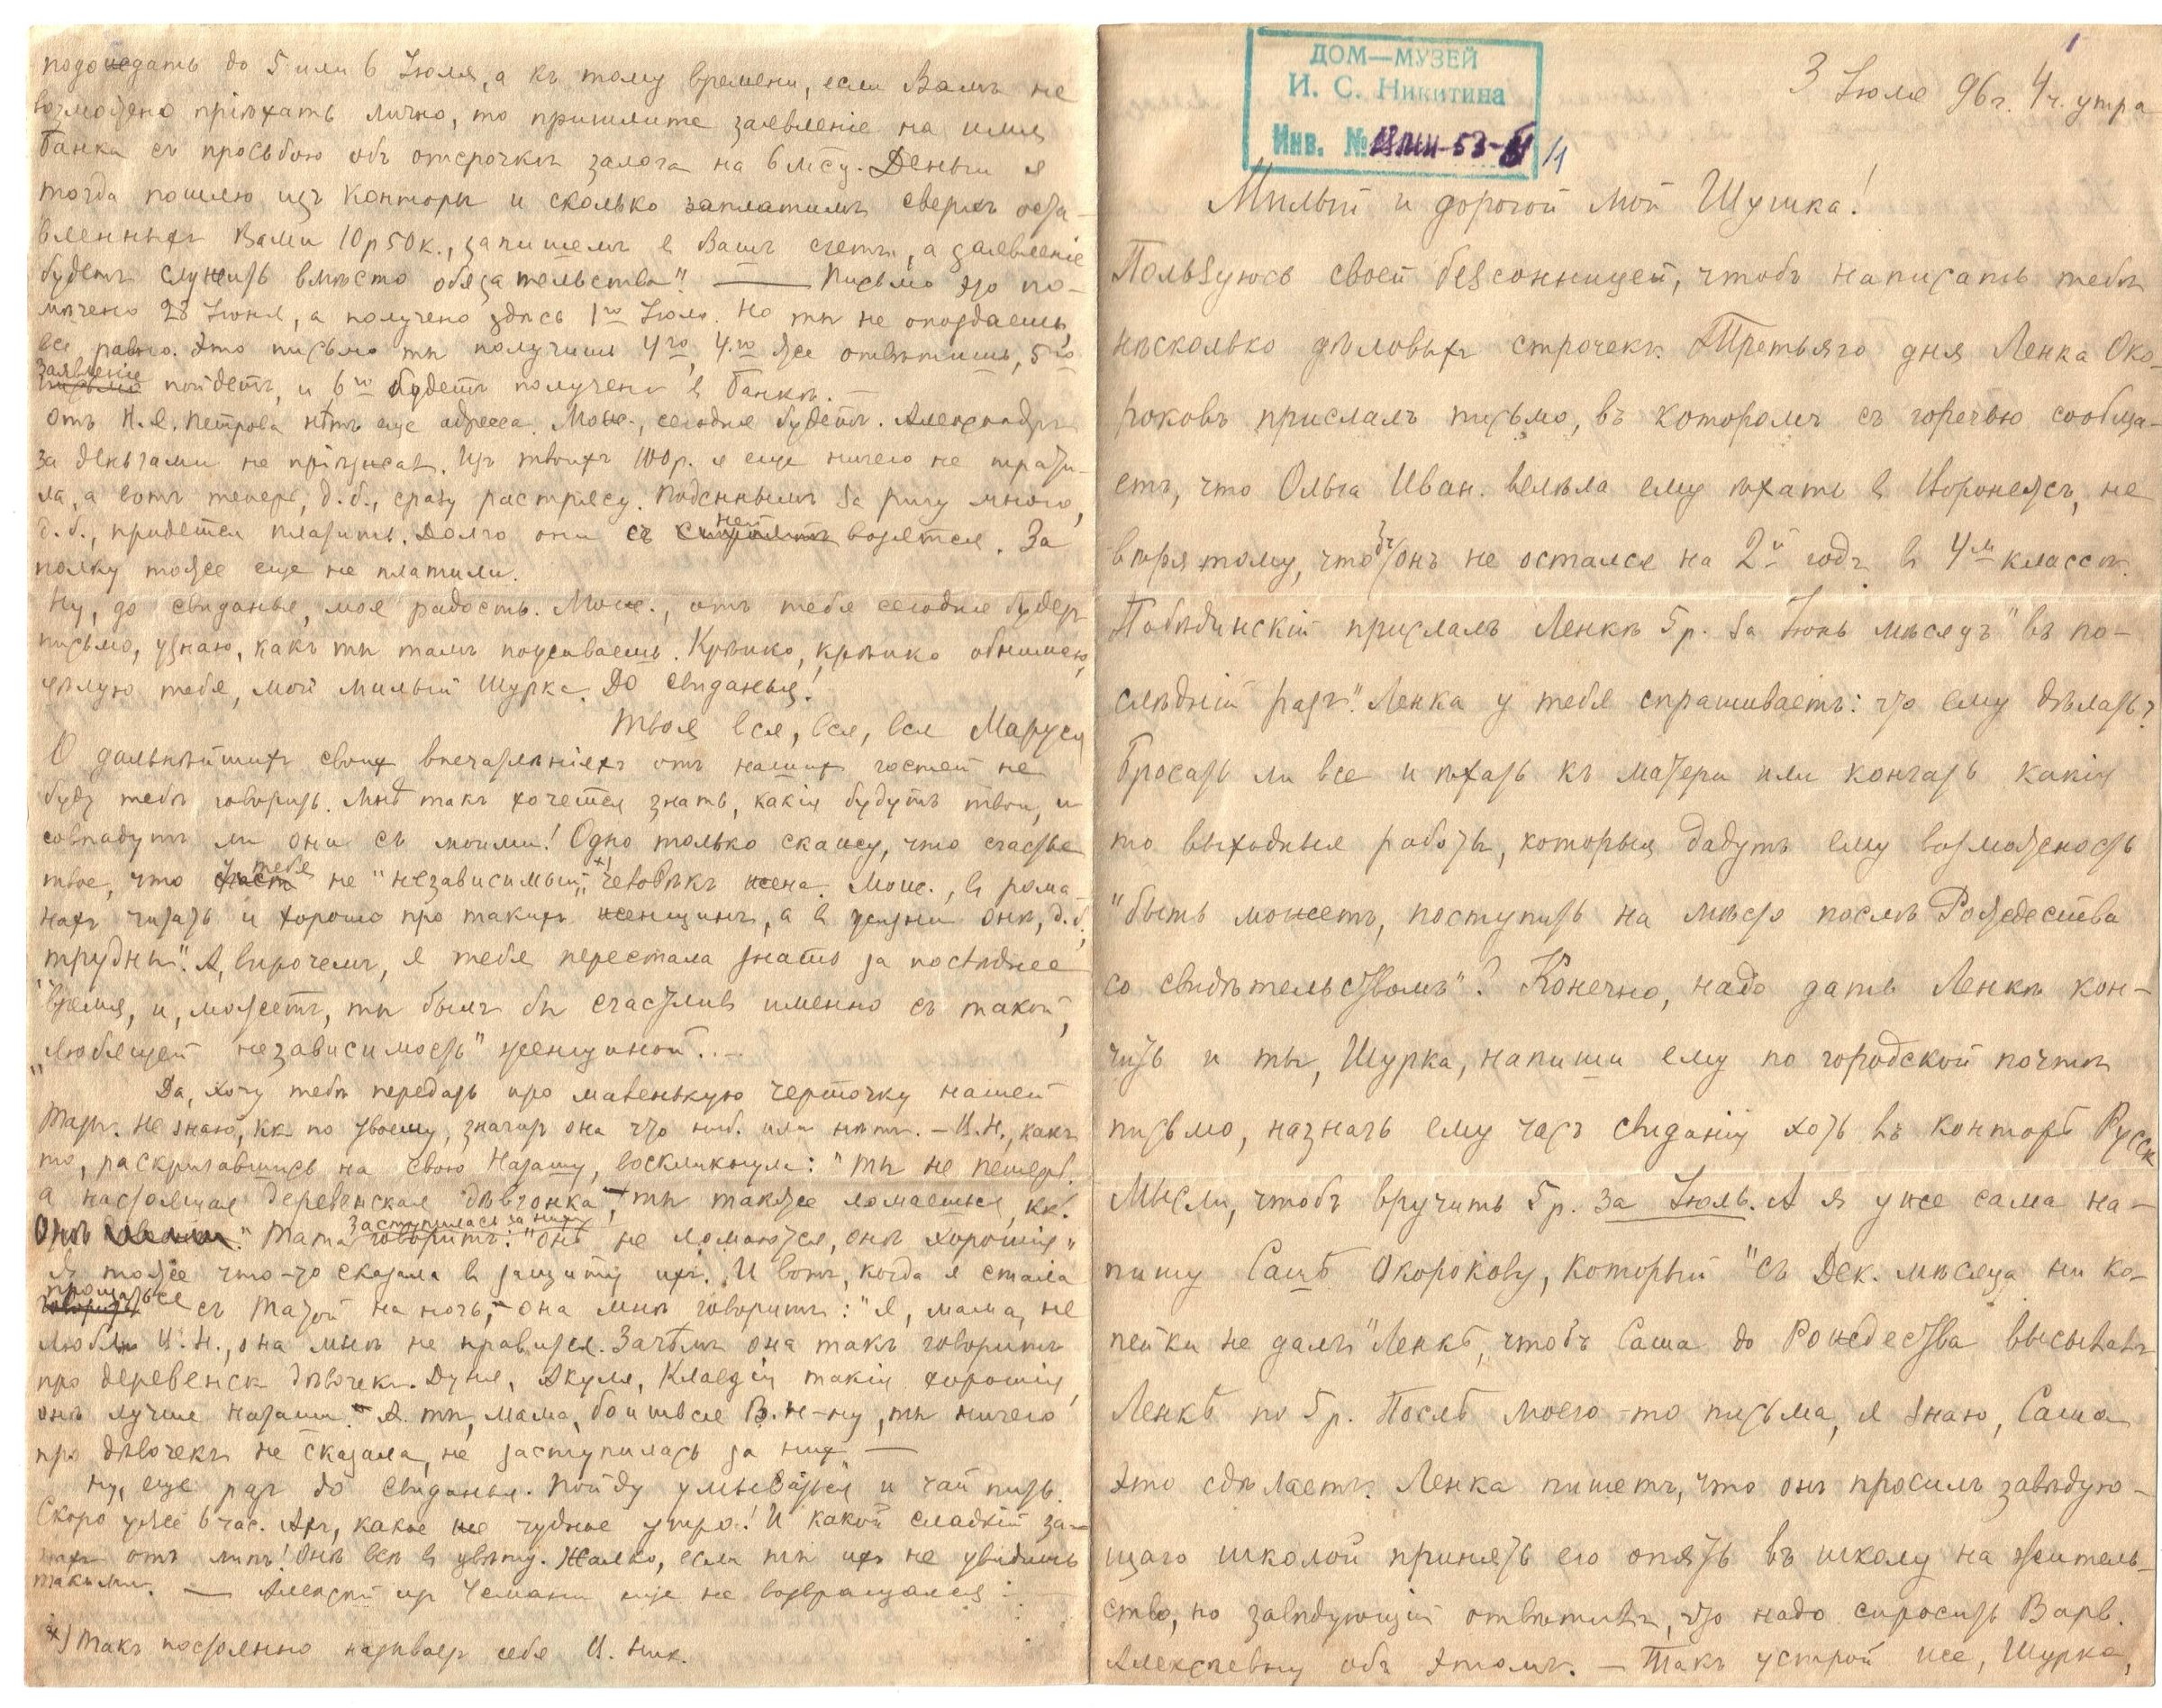 ДОМ—МУЗЕЙ
И. С. Никитина
Инв. №
11
3 Іюля 96 г. 4 ч. утра
Милый и дорогой мой Шушка!
Пользуюсь своей безсонницей, чтобъ написать тебѣ
нѣсколько дѣловыхъ строчекъ. Третьяго дня Ленка Око-
роковъ прислалъ письмо, въ которомъ съ горечью сообща-
етъ, что Ольга Иван. велѣла ему ѣхать въ Воронежъ, не
вѣря тому, чтобъ онъ не остался на 2й годъ въ 4мъ классѣ.
Побѣдинскій прислалъ Ленкѣ 5 р. за Іюнь мѣсяцъ "въ по-
слѣдній разъ". Ленка у тебя спрашиваетъ: что ему дѣлать?
Бросать ли все и ѣхать къ матери или кончать какія
то выходныя работы, которыя дадутъ ему возможность
"быть можетъ, поступить на мѣсто послѣ Рождества
со свидѣтельствомъ"? Конечно, надо дать Ленкѣ кон-
чить и ты, Шурка, напиши ему по городской почтѣ
письмо, назначь ему часъ свиданія хоть въ конторѣ Русск
Мысли, чтобъ вручить 5 р. за Іюль. А я уже сама на-
пишу Сашѣ Окорокову, который "съ Дек. мѣсяца ни ко-
пейки не далъ" Ленкѣ, чтобъ Саша до Рождества высылалъ
Ленкѣ по 5 р. Послѣ моего-то письма, я знаю, Саша
это сдѣлаетъ. Ленка пишетъ, что онъ просилъ завѣдую-
щаго школой принять его опять въ школу на житель-
ство, но завѣдующій отвѣтилъ, что надо спросить Варв.
Алексѣевну объ этомъ. — Такъ устрой же, Шурка,
подождать до 5 или 6 Іюля, а къ тому времени, если Вамъ не
возможно пріѣхать лично, то пришлите заявленіе на имя
Банка съ просьбою объ отсрочкѣ залога на 6 м-су. Деньги я
тогда пошлю изъ конторы и сколько заплатимъ сверхъ оста-
вленныхъ Вами 10 р 50 к., запишемъ въ Вашъ счетъ, а заявленіе
будетъ служить вмѣсто обязательства". — Письмо это по-
мѣчено 28 Іюня, а получено здѣсь 1го Іюля. Но ты не опоздаешь,
все равно. Это письмо ты получишь 4го, 4го же отвѣтишь, 5го
заявленіе пойдетъ, и 6го будетъ получено въ Банкѣ. —
Отъ Н. Я. Петрова нѣтъ еще адреса. Мож., сегодня будетъ. Александръ
за деньгами не пріѣзжалъ. Изъ твоихъ 100 р. я еще ничего не трати-
ла, а вотъ теперь, д. б., сразу растрясу. Поденнымъ за ригу много,
д. б., придется платить. Долго они съ ней возятся. За
полку тоже еще не платили.
Ну, до свиданья, моя радость. Мож., отъ тебя сегодня будетъ
письмо, узнаю, какъ ты тамъ поживаешь. Крѣпко, крѣпко обнимаю,
цѣлую тебя, мой милый Шурка. До свиданья!
Твоя вся, вся, вся Маруся
О дальнѣйшихъ своихъ впечатлѣніяхъ отъ нашихъ гостей не
буду тебѣ говорить. Мнѣ такъ хочется знать, какія будутъ твои, и
совпадутъ ли они съ моими! Одно только скажу, что счастье
твое, что тебѣ не "независимый х) человѣкъ" жена. Мож., въ рома-
нахъ читать и хорошо про такихъ женщинъ, а въ жизни онѣ, д. б.,
"трудны". А, впрочемъ, я тебя перестала знать за послѣднее
время, и, можетъ, ты былъ бы счастливъ именно съ такой,
"любящей независимость" женщиной...
Да, хочу тебѣ передать про маленькую черточку нашей
Таты. Не знаю, кк по твоему, значитъ она что ниб. или нѣтъ. — И. Н., какъ
то, раскричавшись на свою Наташу, воскликнула: "ты не
а настоящая деревенская дѣвчонка, ты также ломаешься, кк.
онѣ." Тата заступилась за нихъ: "онѣ не ломаются, онѣ хорошія"
Я тоже что-то сказала въ защиту ихъ. И вотъ, когда я стала
прощаться съ Татой на ночь, — она мнѣ говоритъ: "я, мама, не
люблю И. Н., она мнѣ не нравится. Зачѣмъ она такъ говоритъ
про деревенск дѣвочекъ. Дуня, Акуля, Клавдія такія хорошія,
онѣ лучше Наташи. — А ты, мама, боишься В. Н-ну, ты ничего
про дѣвочекъ не сказала, не заступилась за нихъ —
Ну, еще разъ до свиданья. Пойду умываться и чай пить.
Скоро уже 6 час. Ахъ, какое же чудное утро! И какой сладкій за-
пахъ отъ липъ! Онѣ всѣ въ цвѣту. Жалко, если ты ихъ не увидишь
такими. — Алексѣй изъ еще не возвращался
х) Такъ постоянно называетъ себя И. Ник.